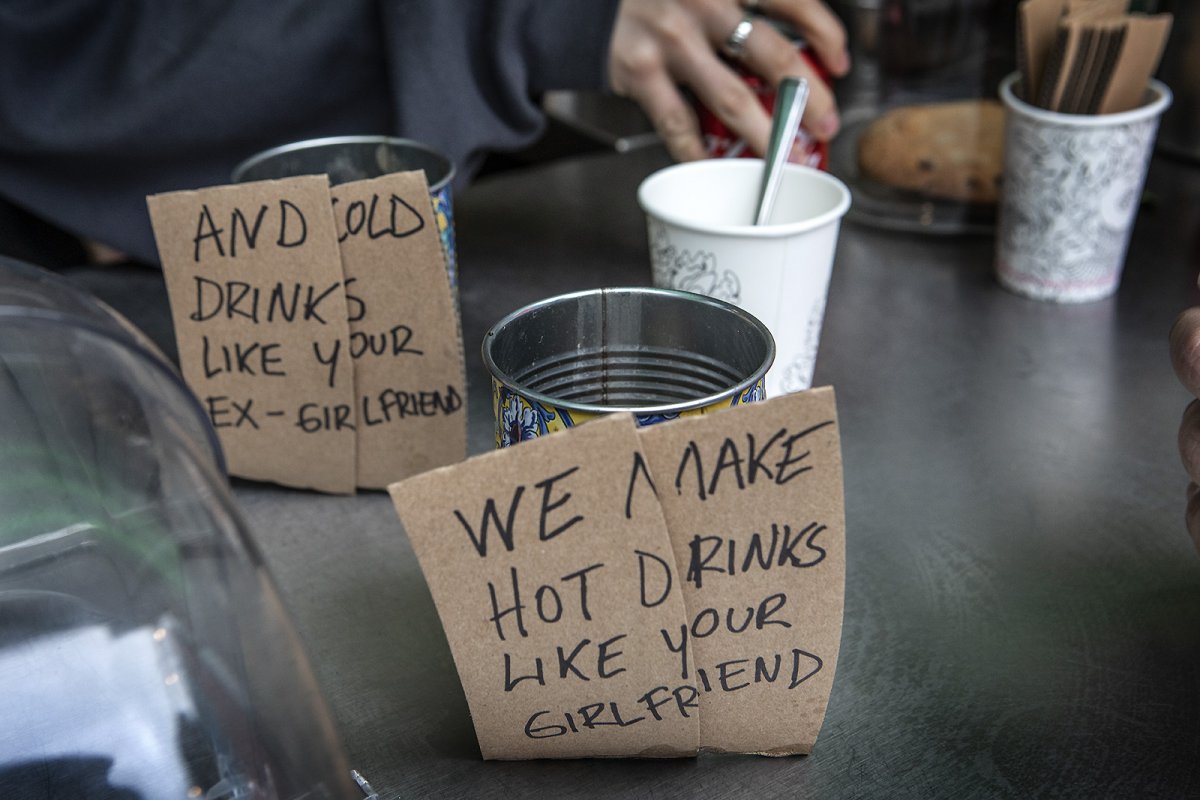 WE MAKE
HOT DRINKS
LIKE YOUR
GIRLFRIEND
AND COLD
DRINKS
LIKE YOUR
EX-GIRLFRIEND